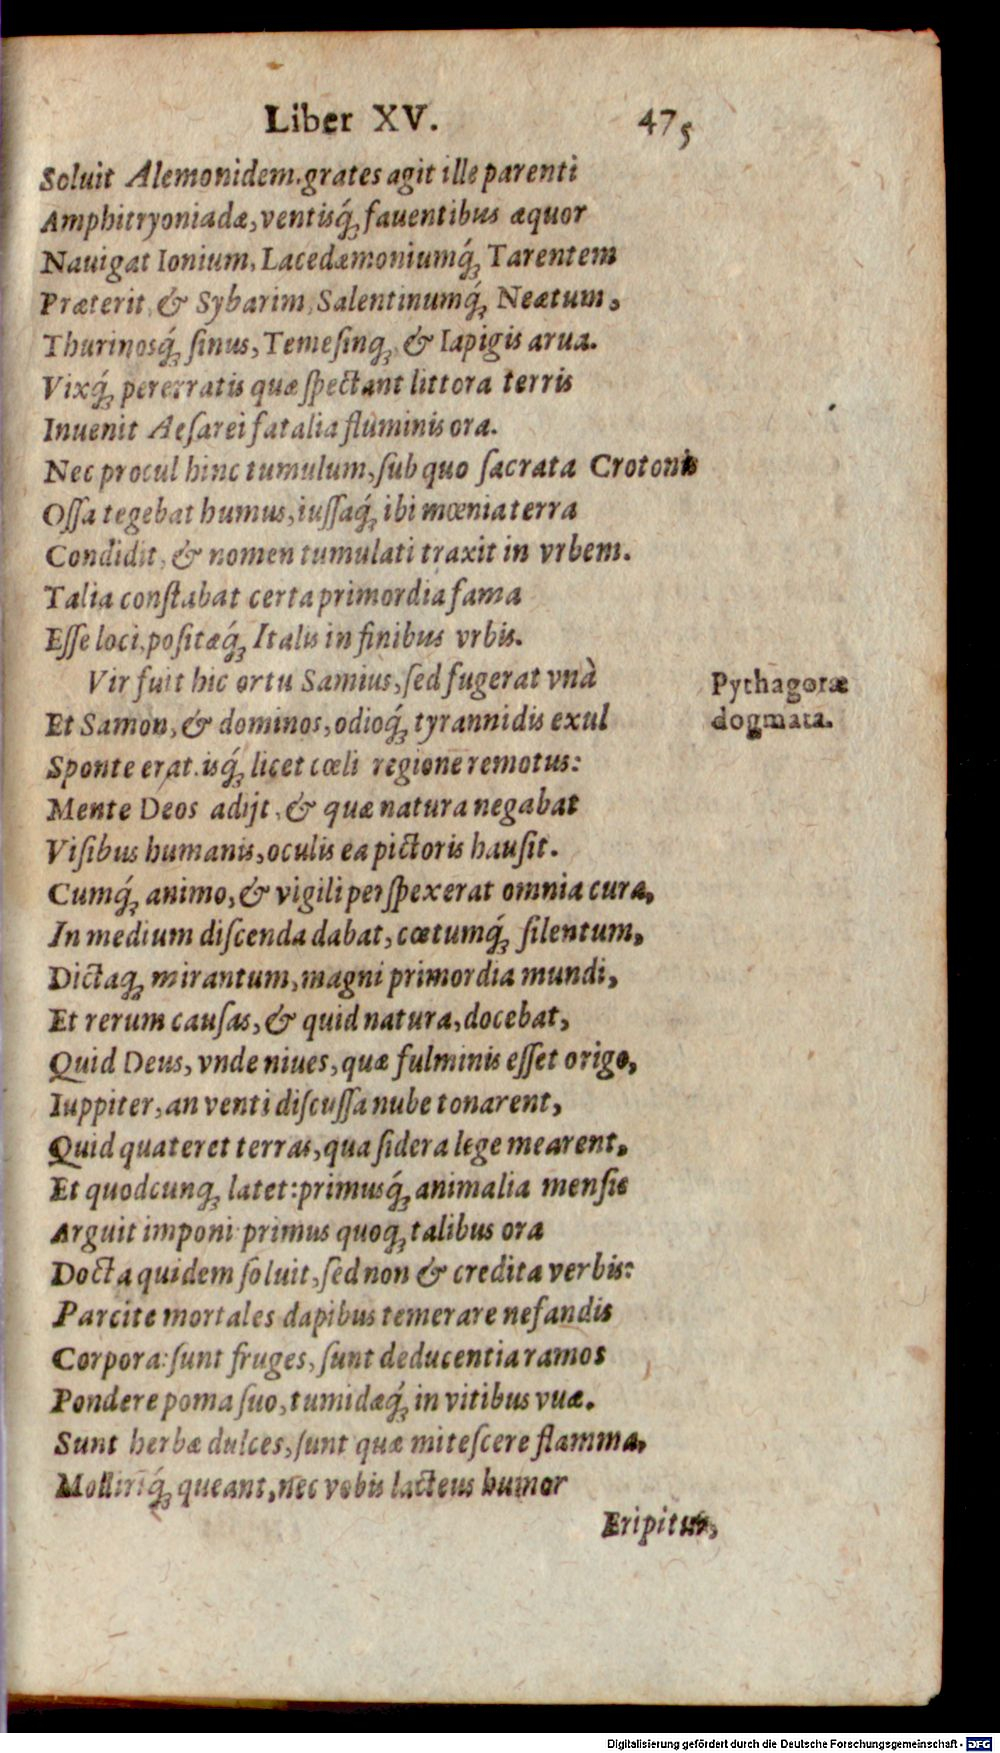 Liber XV. 475
Soluit Alemonidem. grates agit ille parenti
Amphitryoniadæ, ventisq́; fauentibus æquor
Nauigat Ionium, Lacedæmoniumq́; Tarentem
Præterit, & Sybarim, Salentinumq́; Neætum,
Thurinosq́; sinus, Temesinq; & Iapigis arua.
Vixq́; pererratis quæ spectant littora terris
Inuenit Aesarei fatalia fluminis ora.
Nec procul hinc tumulum, sub quo sacrata Crotonis
Ossa tegebat humus, iussaq́; ibi mœnia terra
Condidit, & nomen tumulati traxit in vrbem.
Talia constabat certa primordia fama
Esse loci, positæq́; Italis in finibus vrbis.
Vir fuit hic ortu Samius, sed fugerat vnà
Pythagoræ
Et Samon, & dominos, odioq́; tyrannidis exul
dogmata.
Sponte erat. isq́; licet cœli regione remotus:
Mente Deos adijt, & quæ natura negabat
Visibus humanis, oculis ea pictoris hausit.
Cumq́; animo, & vigili perspexerat omnia cura,
In medium discenda dabat, cœtumq́; silentum,
Dictaq; mirantum, magni primordia mundi,
Et rerum causas, & quid natura, docebat,
Quid Deus, vnde niues, quæ fulminis esset origo,
Iuppiter, an venti discussa nube tonarent,
Quid quateret terras, qua sidera lege mearent,
Et quodcunq; latet: primusq́; animalia mensis
Arguit imponi primus quoq; talibus ora
Docta quidem soluit, sed non & credita verbis:
Parcite mortales dapibus temerare nefandis
Corpora: sunt fruges, sunt deducentia ramos
Pondere poma suo, tumidæq́; in vitibus vuæ.
Sunt herbæ dulces, sunt quæ mitescere flamma,
Molliriq́; queant, nec vobis lacteus humor
Eripitur,
Digitalisierung gefördert durch die Deutsche Forschungsgemeinschaft - DFG